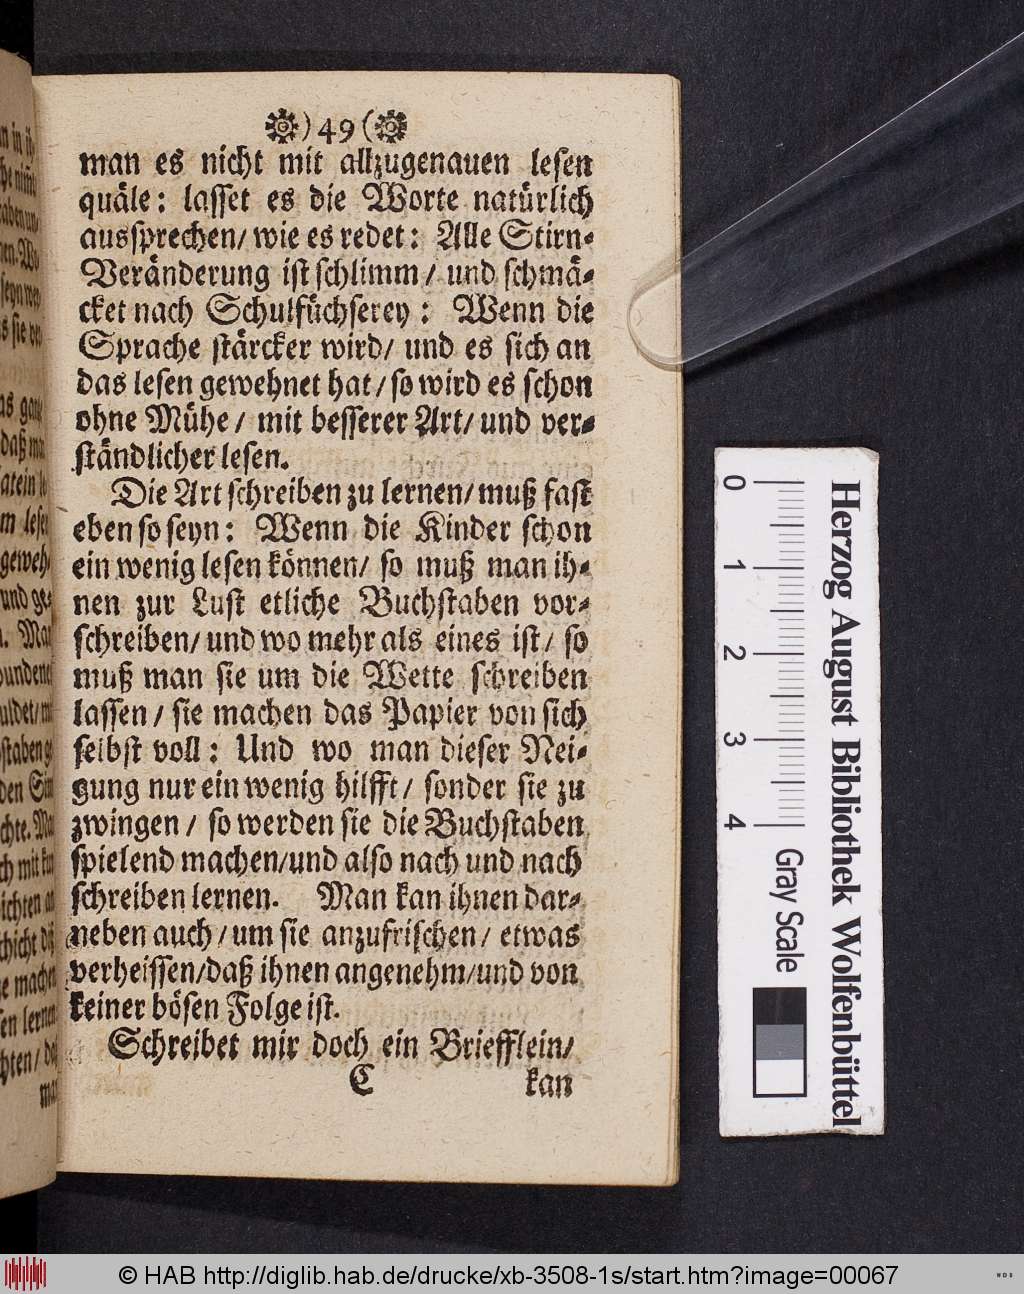 )49(
man es nicht mit allzugenauen lesen
quäle: lasset es die Worte natürlich
aussprechen/ wie es redet: Alle Stirn-
Veränderung ist schlimm/ und schmä-
cket nach Schulfüchserey: Wenn die
Sprache stärcker wird/ und es sich an
das lesen gewehnet hat/ so wird es schon
ohne Mühe/ mit besserer Art/ und ver-
ständlicher lesen.
Die Art schreiben zu lernen/ muß fast
eben so seyn: Wenn die Kinder schon
ein wenig lesen können/ so muß man ih-
nen zur Lust etliche Buchstaben vor-
schreiben/ und wo mehr als eines ist/ so
muß man sie um die Wette schreiben
lassen/ sie machen das Papier von sich
selbst voll: Und wo man dieser Nei-
gung nur ein wenig hilfft/ sonder sie zu
zwingen/ so werden sie die Buchstaben
spielend machen/ und also nach und nach
schreiben lernen. Man kan ihnen dar-
neben auch/ um sie anzufrischen/ etwas
verheissen/ daß ihnen angenehm/ und von
keiner bösen Folge ist.
Schreibet mir doch ein Briefflein/
C kan
Herzog August Bibliothek Wolfenbüttel
0 1 2 3 4 Gray Scale
© HAB http://diglib.hab.de/drucke/xb-3508-1s/start.htm?image=00067